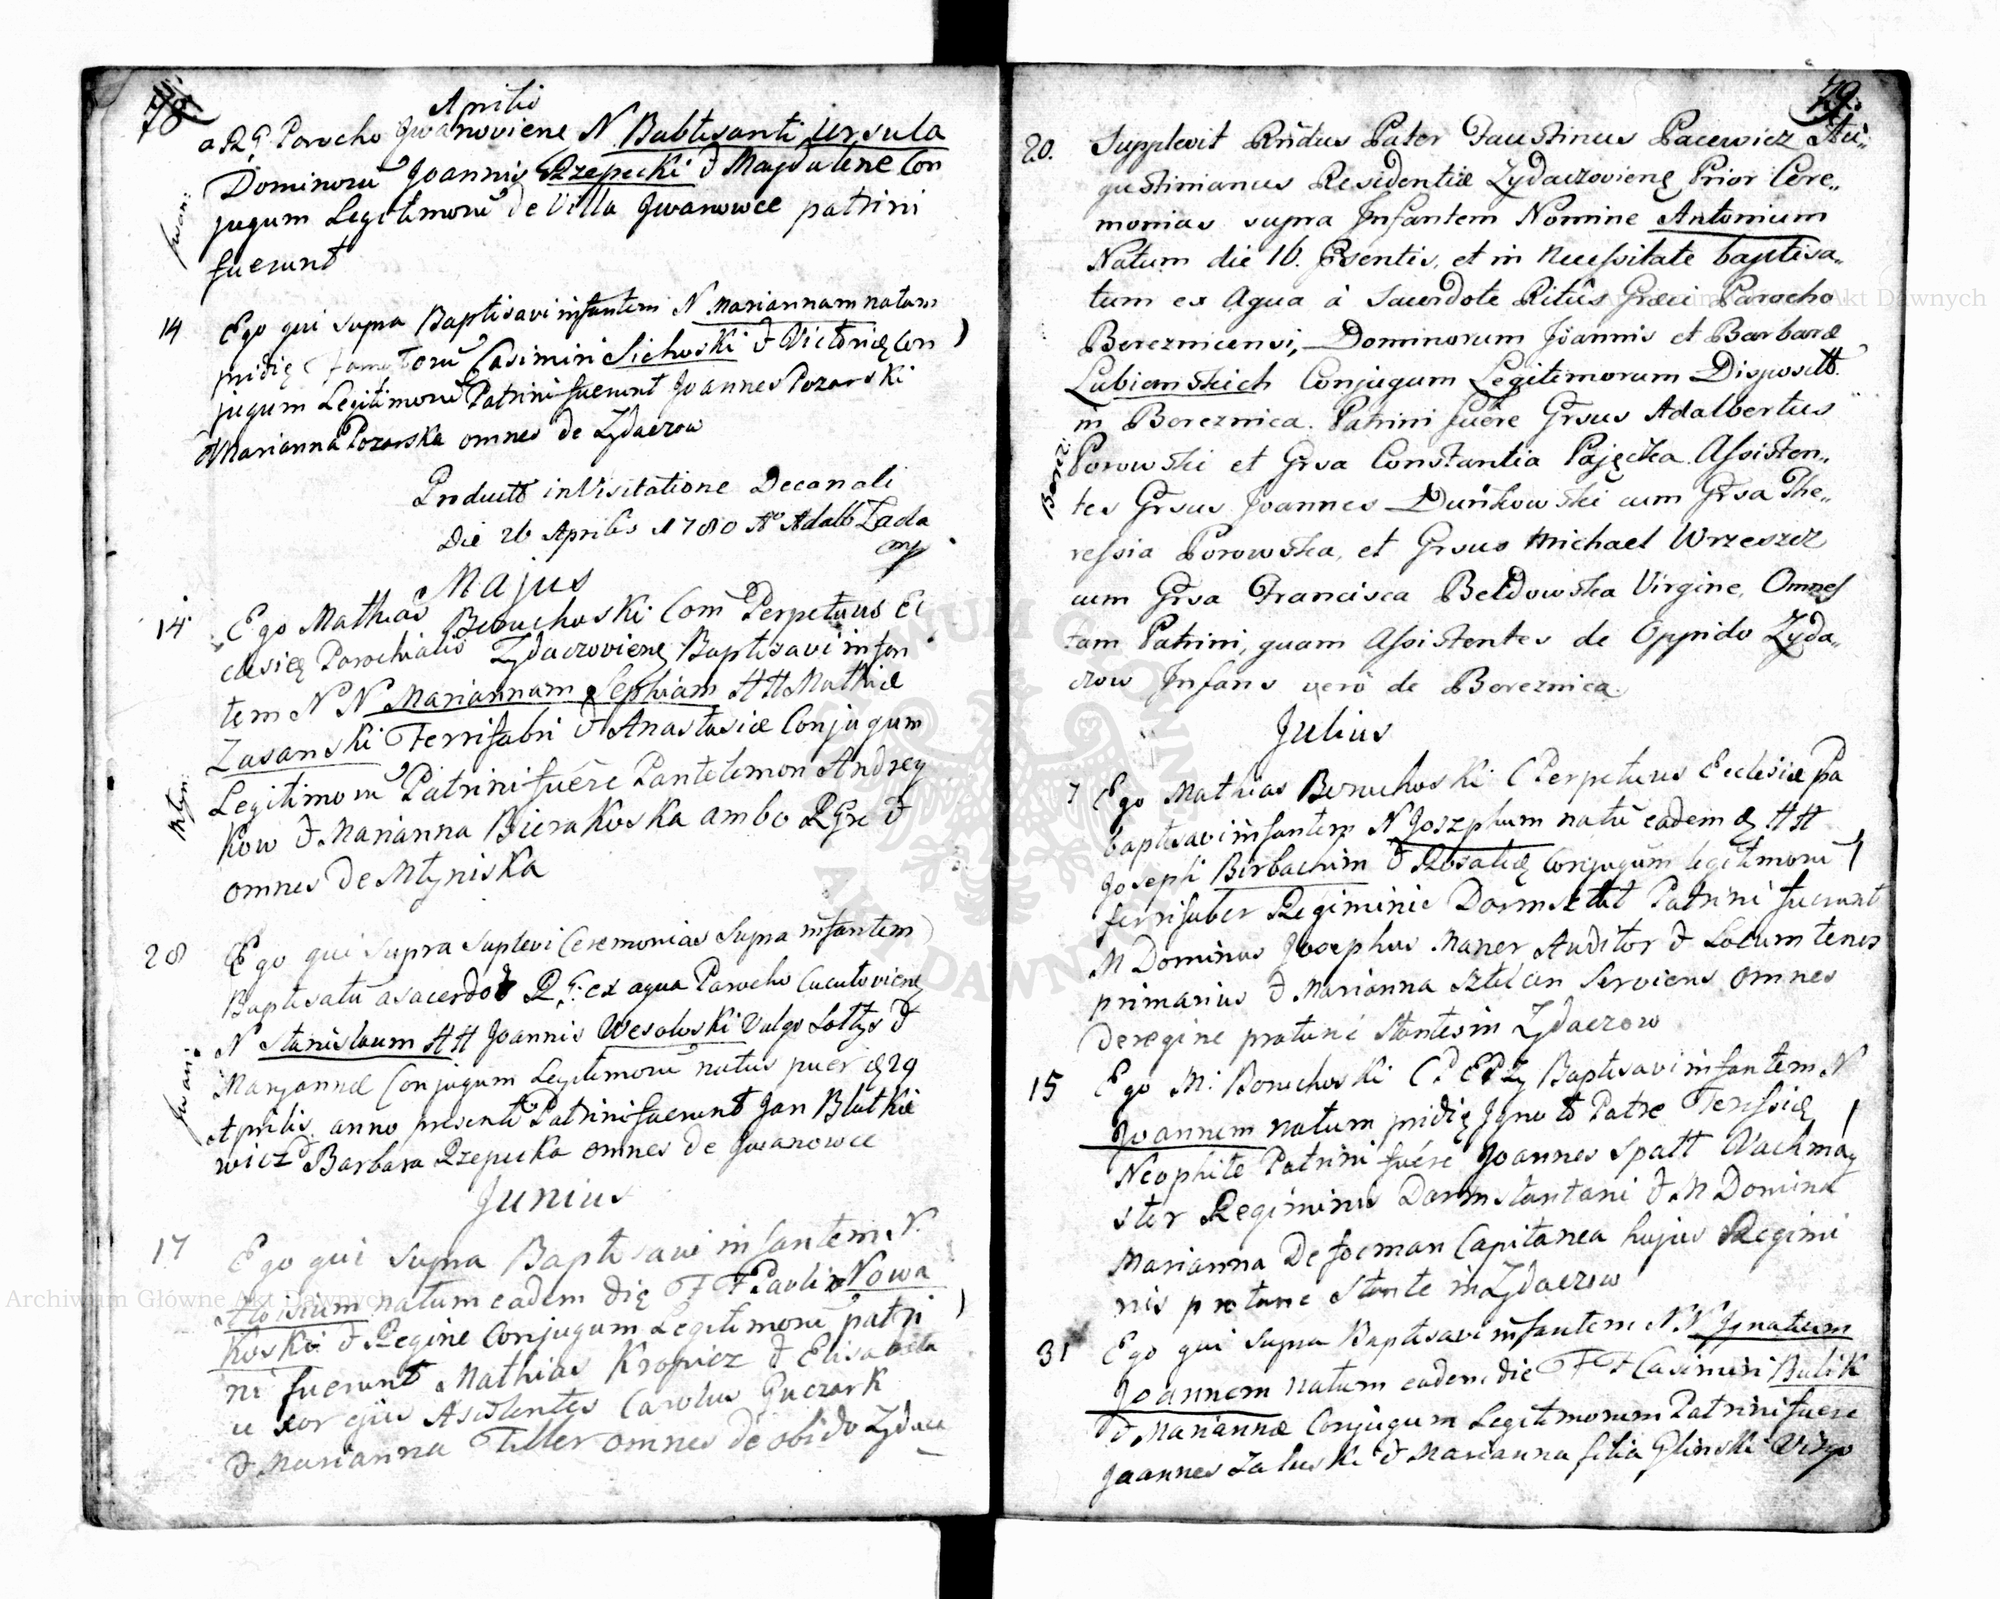 78
Aprilis
a R. G. Parocho Jwanoviene N. Babtisanti Ursula
Dominorū Joannis Rzepecki & Magdalene Con
jugum Legitimorū de Villa Jwanowce patrini
fuerunt
Jwan:
14 Ego qui supra Baptisavi infantem N Mariannam natam
pridię Casimiri Sichoski & Victorię Con
jugum Legitimorū Patrini fuerunt Joannes Pozarski
& Marianna Pozarska omnes de Zydaczow
Producto in Visitatione Decanali
Die 26 Aprilis 1780 Ao Adalb Lada
mp
Majus
14 Ego Mathias Boruchoski Com Perpetuus Ec
clesię Parochialis Zydaczovienę Baptisavi infan
tem N N Mariannam Sophiam HH Mathiæ
Zasanski Ferrifabri & Anastasiæ Conjugum
Legitimorū Patrini fuére Pantelemon Andrey
kow & Marianna Bierakoska ambo R Gre &
omnes de Młyniska
Młyn:
28 Ego qui supra Suplevi Ceremonias Supra infantem
Baptisatū a sacerdote R G: ex aqua Parocho Cucułovienę
N Stanislaum HH Joannis Wesołoski Vulgo Sołtys &
Maryannæ Conjugum Legitimorū natus puer 29
Aprilis anno presenti Patrini fuerunt Jan Blutkie
wicz & Barbara Rzepecka omnes de Jwanowce
Jwani:
Junius
17 Ego qui Supra Baptisavi infantem N.
Aloisium natum eadem dię F F Pauli Nowa
koski & Regine Conjugum Legitimorū patri
ni fuerunt Mathias Kropicz & Elisabeta
uxor ejus Asistentes Carolus Guczark
& Marianna Tiller omnes de obido Zydacz
79.
20. Supplevit Rñdus Pater Faustinus Pacewicz Au„
gustinianus Residentiæ Zydaczovienę Prior Cere„
monias supra Infantem Nomine Antonium
Natum die 16. Psentis, et in Necessitate baptisa„
tum ex Aqua à Sacerdote Ritûs Græci Parocho
Bereznicensi, Dominorum Joannis et Barbaræ
Lubienskich Conjugum Legitimorum Dispositt.
in Bereznica. Patrini fuêre Grsus Adalbertus
Porowski et Grsa Constantia Pajęcka. Assisten„
tes Grsus Joannes Duńkowski cum Grsa The„
ressia Porowska, et Grsus Michael Wrzeszcz
cum Grsa Francisca Bełdowska Virgine, Omnes
tam Patrini, quam Assistentes de Oppido Zyda„
czow Infans verò de Bereznica.
Berez:
Julius
7 Ego Mathias Boruchoski C Perpetuus Ecclesiæ Pa
baptisavi infantem N Joszphum natū eadem HH
Josephi Birbachim & Rosalię Conjugum legitimorū
ferrifaber Regiminis Darmsttt Patrini fuerunt
M Dominus Josephus Maner Auditor & Locum tenens
primarius & Marianna Sztelcin Serviens omnes
deregine protunc stantes in Zydaczow
15 Ego M: Boruchoski C P. E P Zy Baptisavi infantem N
Joannem natum pridię Jgnoto Patre Teressię
Neophite Patrini fuére Joannes Spatt Wachmay
ster Regiminis Darmstantani & M Domina
Marianna De focman Capitanea hujus Regimi
nis protunc Stante in Zydaczow
31 Ego qui Supra Baptisavi infantem N N Jgnatium
Joannem natum eadem die F F Casimiri Bulik
& Mariannæ Conjugum Legitimorum Patrini fuére
Joannes Zaluski & Marianna filia Glinski Virgo